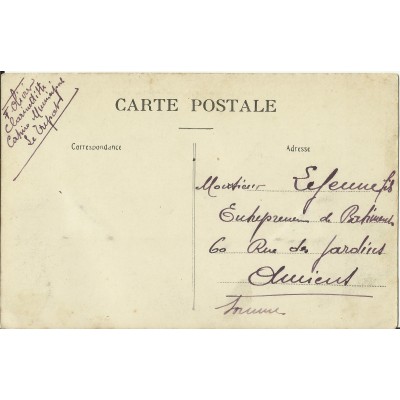 Clarinettiste
Casino Municipal
Le Tréport
CARTE POSTALE
Correspondance
Adresse
Monsieur Lejeune fils
Entrepreneur de Batiments
60 Rue des Jardins
Amiens
Somme